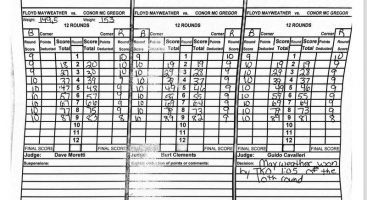 FLOYD MAYWEATHER vs. CONOR MC GREGOR
Weight: 149.5 Weight: 153
12 ROUNDS
B Corner Corner R
Round Score Points Deducted Score Total Round Score Total Points Deducted Round Score
9 1 10
9 18 2 20 10
9 27 3 30 10
10 37 4 39 9
10 47 5 48 9
10 57 6 57 9
10 67 7 66 9
10 77 8 75 9
10 87 9 83 8
10
11
12
FINAL SCORE FINAL SCORE
Judge: Dave Moretti
FLOYD MAYWEATHER vs. CONOR MC GREGOR
12 ROUNDS
B Corner Corner R
Round Score Points Deducted Score Total Round Score Total Points Deducted Round Score
9 1 10
10 19 2 19 9
10 29 3 28 9
10 39 4 37 9
10 49 5 46 9
10 59 6 55 9
10 69 7 64 9
10 79 8 73 9
10 89 9 82 9
10
11
12
FINAL SCORE FINAL SCORE
Judge: Burt Clements
Explain deduction of points or comments:
FLOYD MAYWEATHER vs. CONOR MC GREGOR
12 ROUNDS
B Corner Corner R
Round Score Points Deducted Score Total Round Score Total Points Deducted Round Score
9 1 10
10 19 2 19 9
10 29 3 28 9
10 39 4 37 9
10 49 5 46 9
10 59 6 55 9
10 69 7 64 9
10 79 8 73 9
10 89 9 81 8
10
11
12
FINAL SCORE FINAL SCORE
Judge: Guido Cavalleri
Decision: Mayweather won
by TKO 1:05 of the
10th round